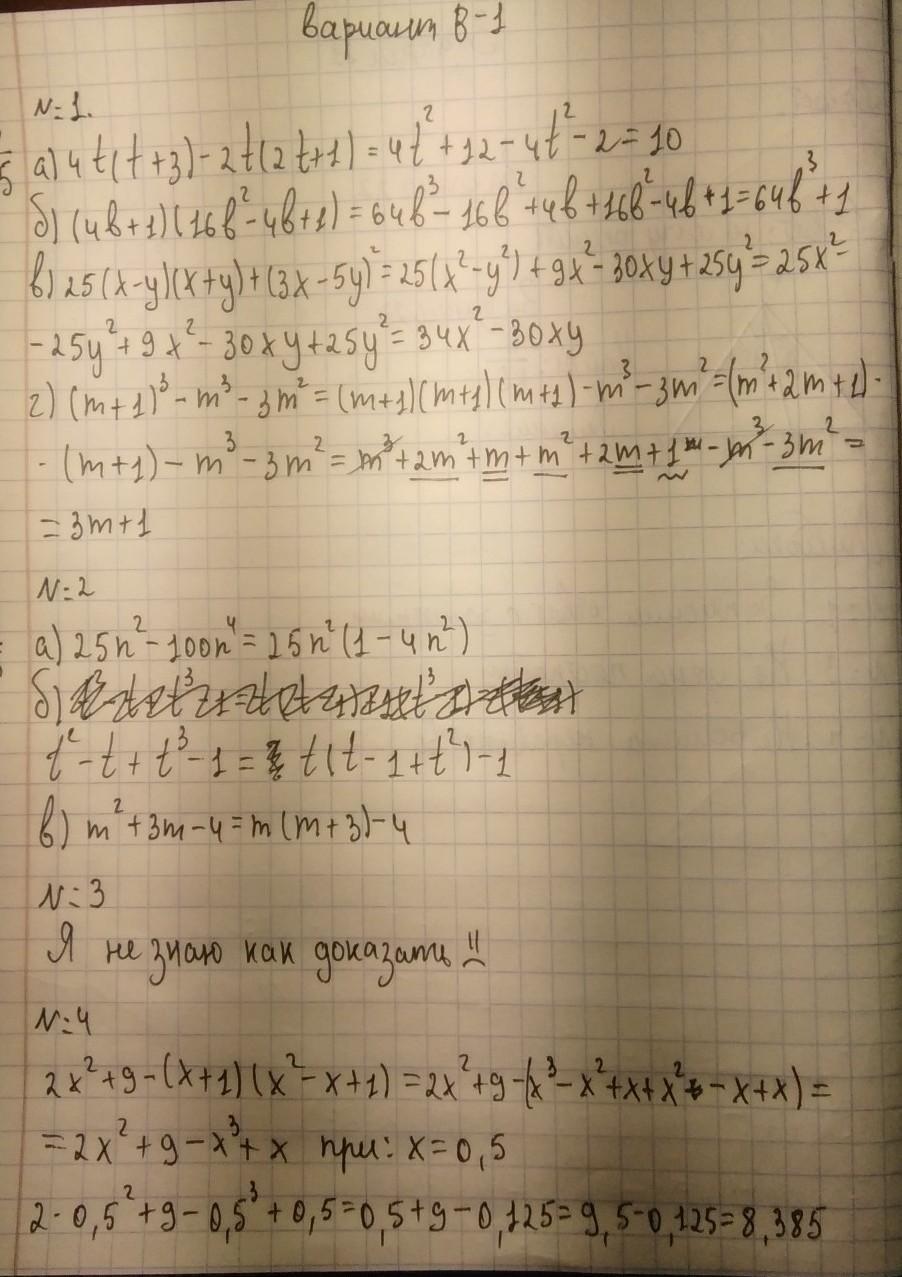 вариант В-1
N=1.
а) 4t(t+3)-2t(2t+1)=4t²+12-4t²-2=10
б) (4b+1)(16b²-4b+1)=64b³-16b²+4b+16b²-4b+1=64b³+1
в) 25(x-y)(x+y)+(3x-5y)²=25(x²-y²)+9x²-30xy+25y²=25x²-
-25y²+9x²-30xy+25y²=34x²-30xy
г) (m+1)³-m³-3m²=(m+1)(m+1)(m+1)-m³-3m²=(m²+2m+1)·
·(m+1)-m³-3m²=m³+2m²+m+m²+2m+1-m³-3m²=
=3m+1
N=2
а) 25n²-100n⁴=25n²(1-4n²)
б)
t²-t+t³-1=t(t-1+t²)-1
в) m²+3m-4=m(m+3)-4
N=3
Я не знаю как доказать
N=4
2x²+9-(x+1)(x²-x+1)=2x²+9-(x³-x²+x+x²-x+x)=
=2x²+9-x³+x при: x=0,5
2·0,5²+9-0,5³+0,5=0,5+9-0,125=9,5-0,125=8,385